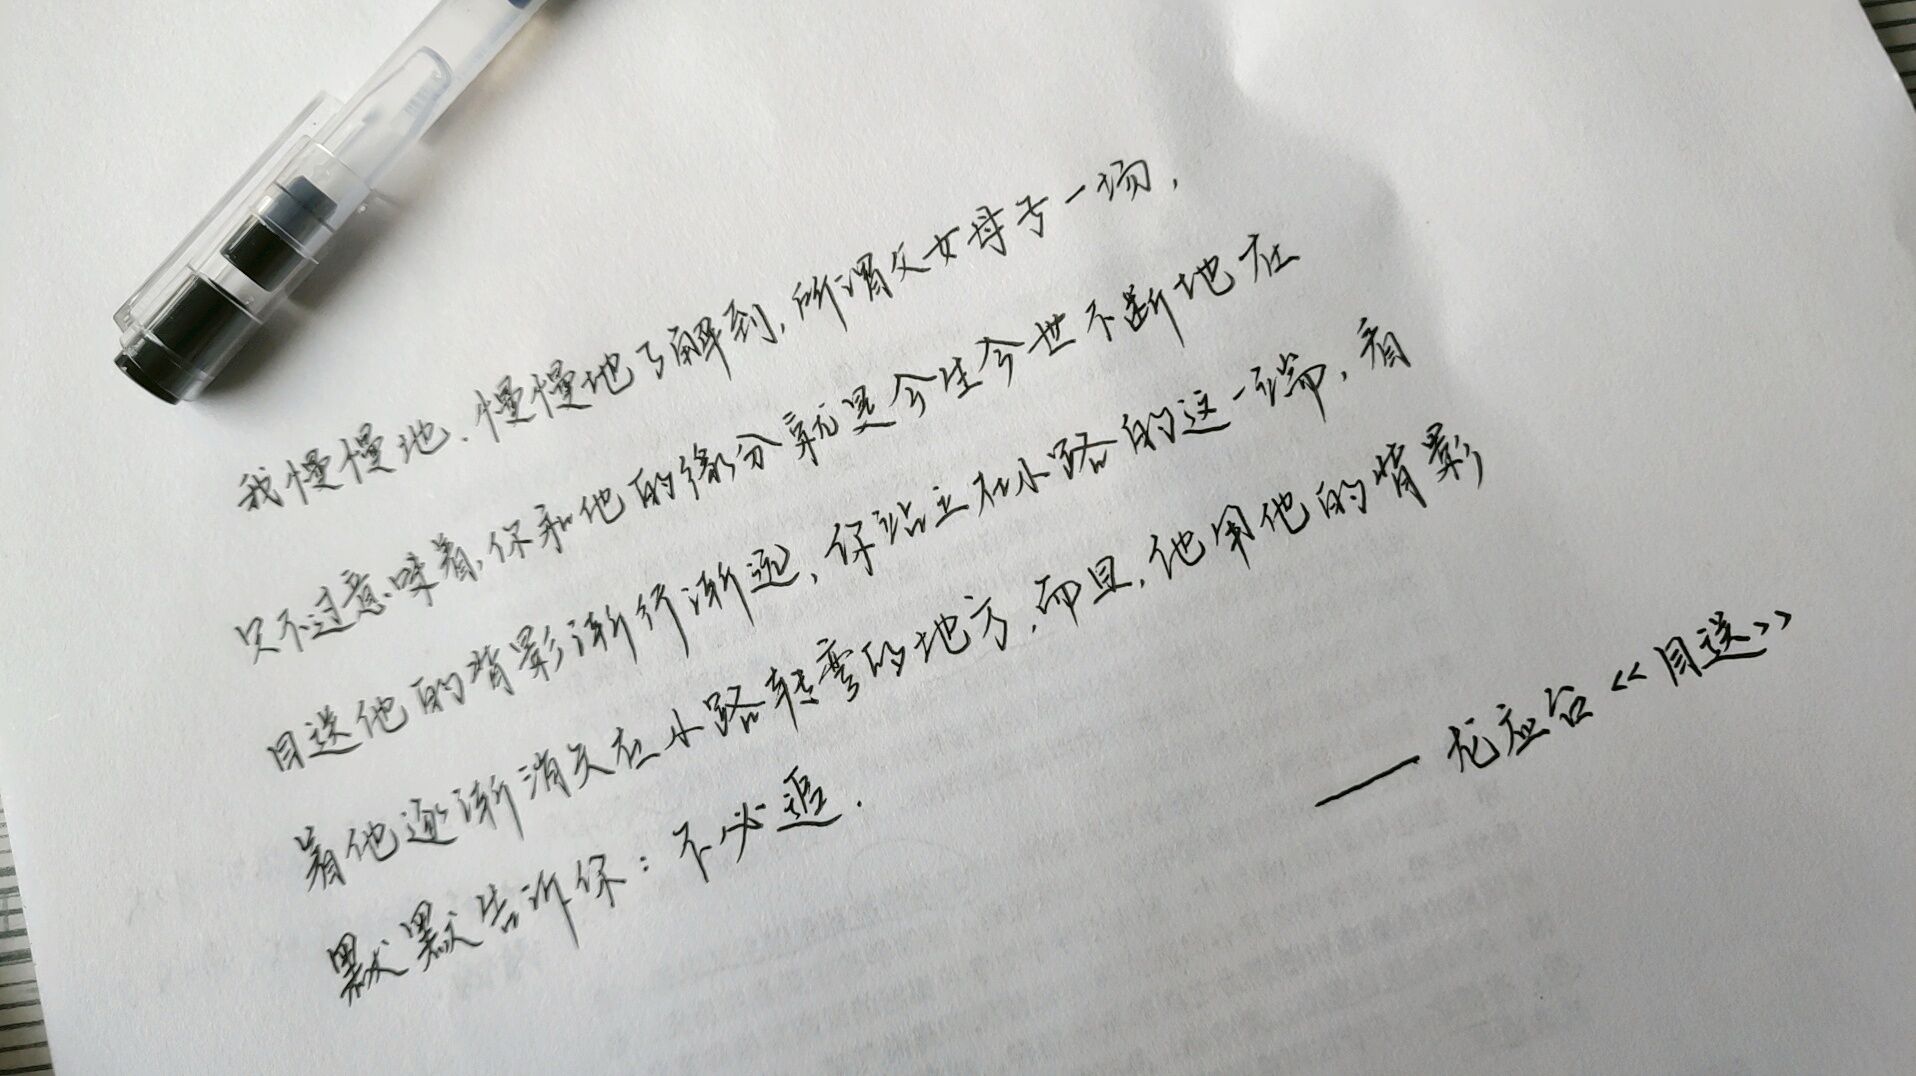 我慢慢地、慢慢地了解到,所谓父女母子一场,
只不过意味着,你和他的缘分就是今生今世不断地在
目送他的背影渐行渐远,你站立在小路的这一端,看
着他逐渐消失在小路转弯的地方,而且,他用他的背影
默默告诉你:不必追.
——龙应台《目送》